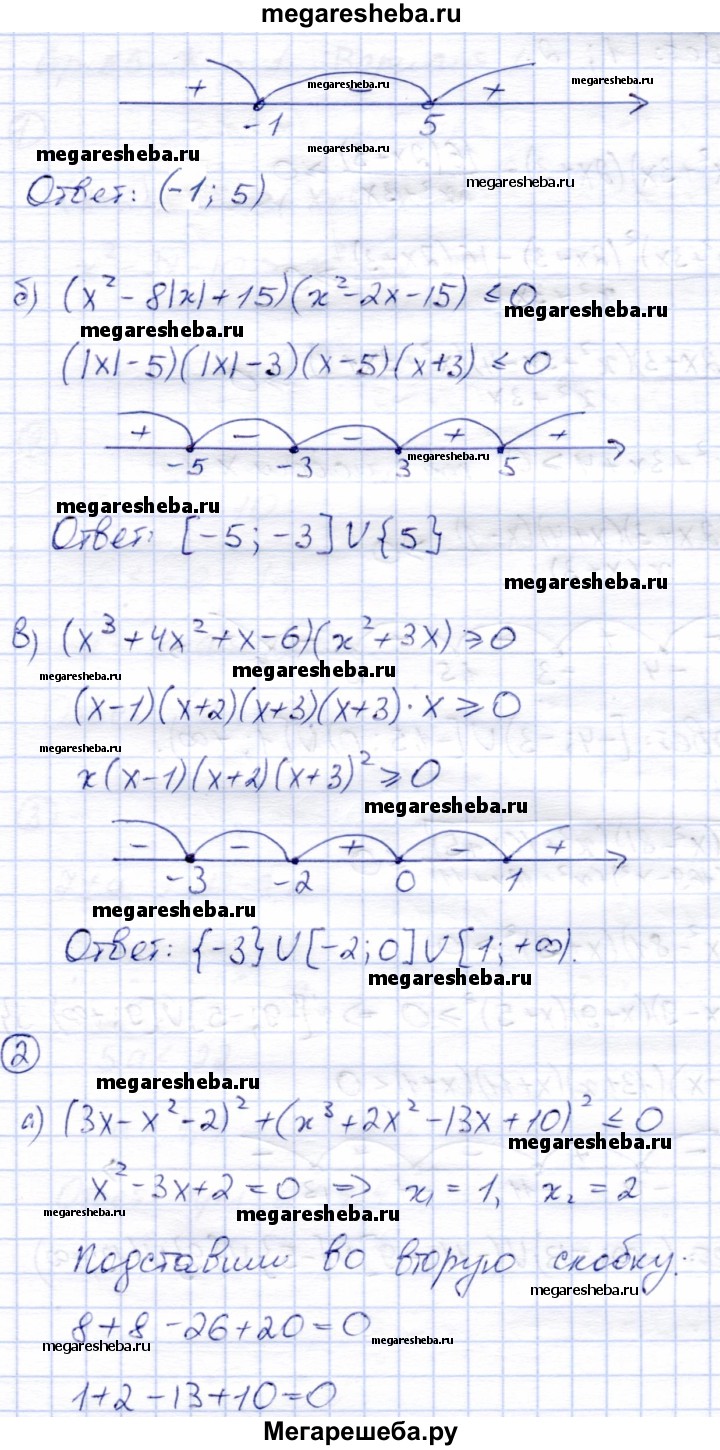 megaresheba.ru
+ - +
megaresheba.ru megaresheba.ru
-1 5
megaresheba.ru megaresheba.ru
Ответ: (-1; 5) megaresheba.ru
б) (x² - 8|x| + 15)(x² - 2x - 15) ≤ 0
megaresheba.ru megaresheba.ru
(|x| - 5)(|x| - 3)(x - 5)(x + 3) ≤ 0
+ - - + +
-5 -3 3 megaresheba.ru 5
megaresheba.ru
Ответ: [-5; -3] ∪ {5}
megaresheba.ru
в) (x³ + 4x² + x - 6)(x² + 3x) ≥ 0
megaresheba.ru megaresheba.ru
(x - 1)(x + 2)(x + 3)(x + 3) · x ≥ 0
megaresheba.ru
x(x - 1)(x + 2)(x + 3)² ≥ 0
megaresheba.ru
- - + - +
-3 -2 0 1
megaresheba.ru
Ответ: {-3} ∪ [-2; 0] ∪ [1; +∞).
megaresheba.ru
2
megaresheba.ru
а) (3x - x² - 2)² + (x³ + 2x² - 13x + 10)² ≤ 0
megaresheba.ru
x² - 3x + 2 = 0 ⇒ x₁ = 1, x₂ = 2
megaresheba.ru megaresheba.ru
Подставим во вторую скобку:
megaresheba.ru
8 + 8 - 26 + 20 = 0
megaresheba.ru megaresheba.ru
1 + 2 - 13 + 10 = 0
Мегарешеба.ру